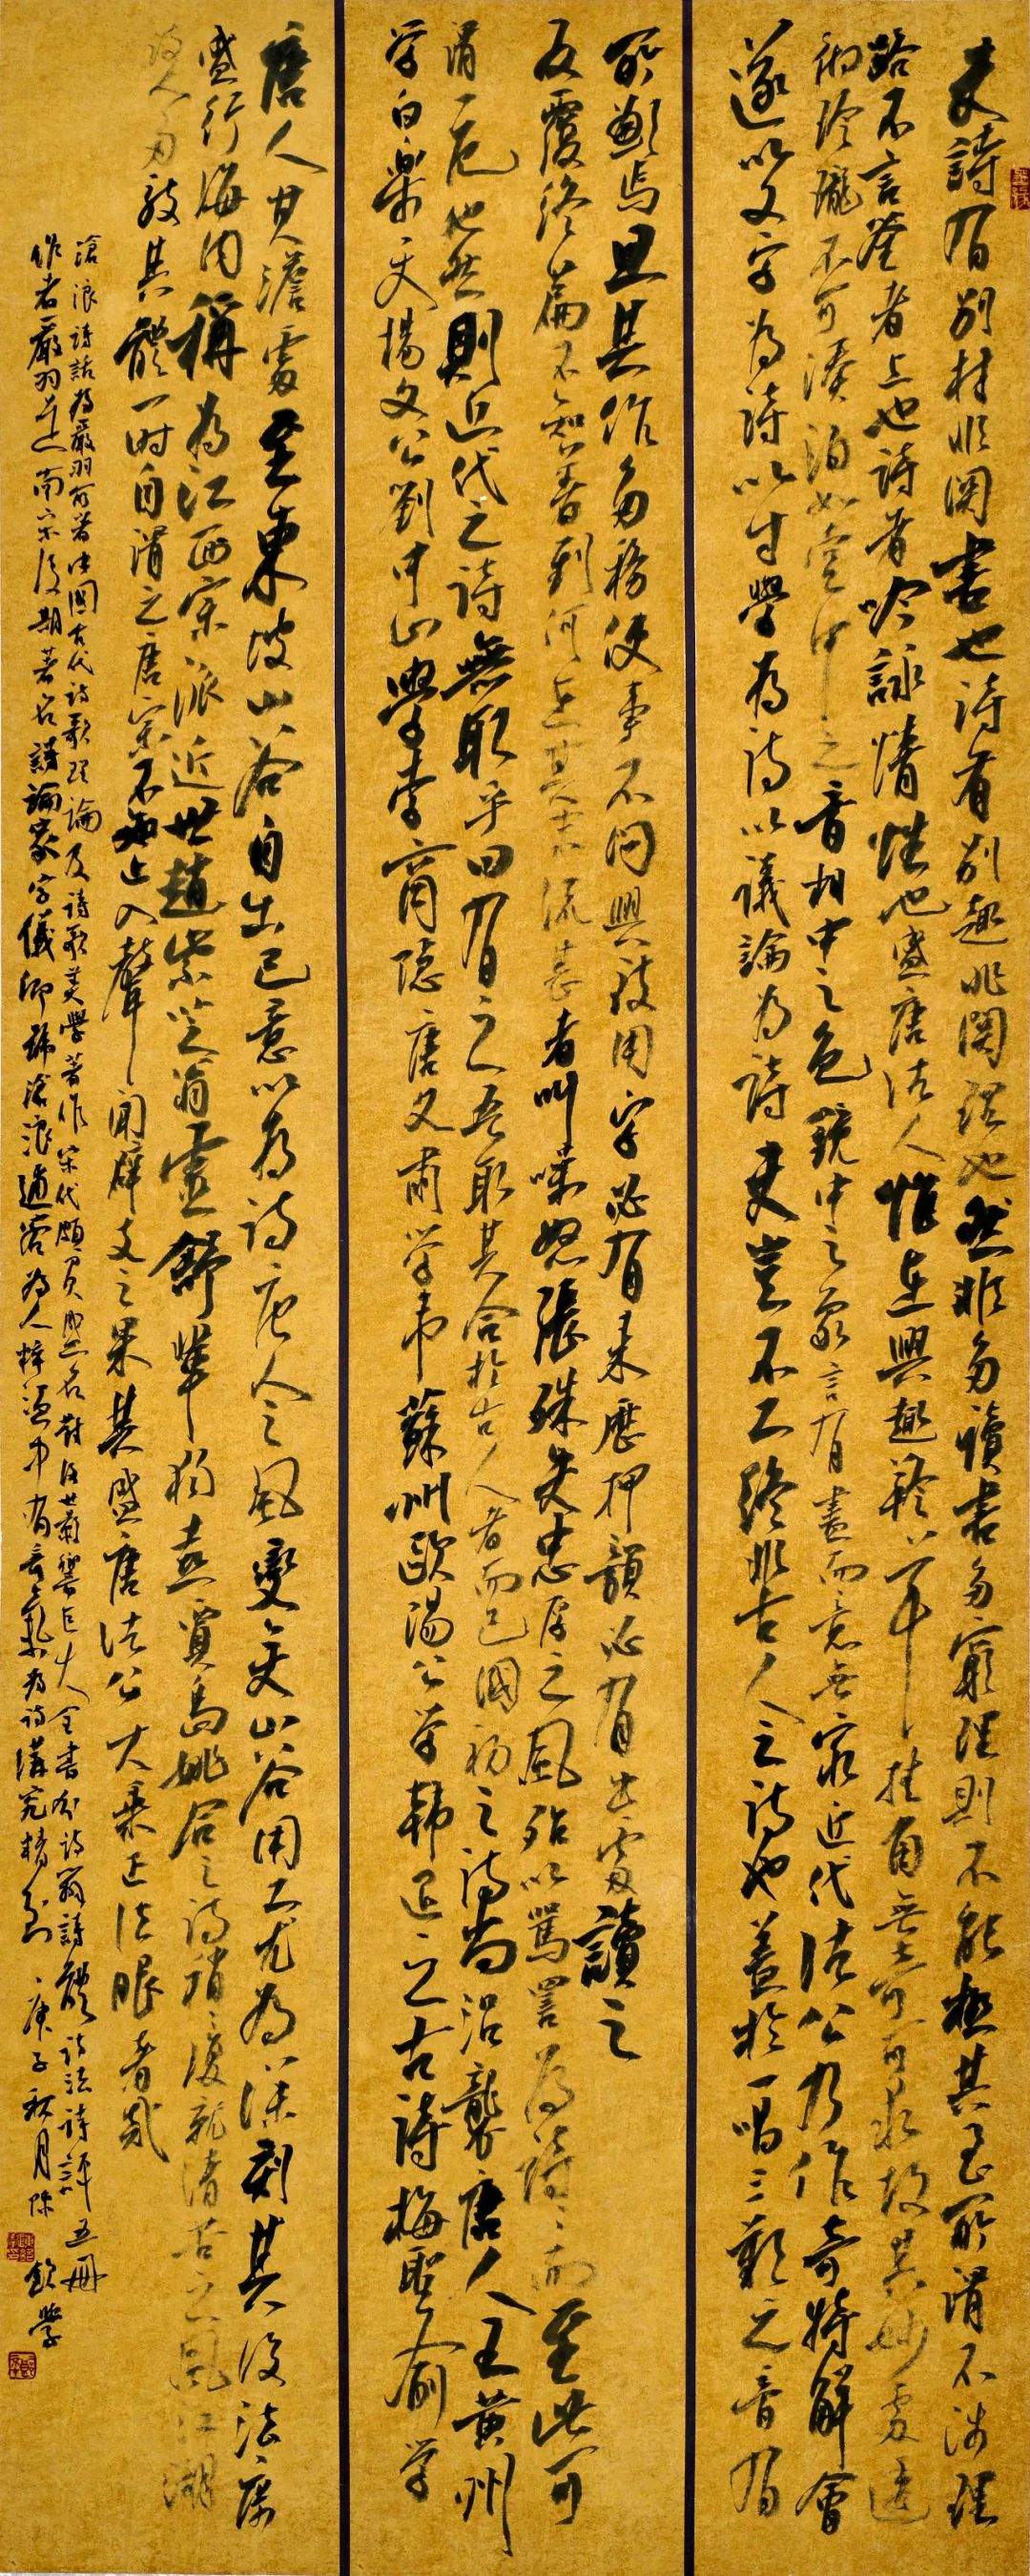 夫詩有別材非関書也詩有別趣非関理也然非多讀書多窮理則不能極其至所謂不涉理
路不言筌者上也詩者吟詠情性也盛唐諸人惟在興趣羚羊挂角無可求故其妙處透
徹玲瓏不可湊泊如空中之音相中之色鏡中之象言有盡而意無窮近代諸公乃作奇特解會
遂以文字為詩以才學為詩以議論為詩夫豈不工終非古人之詩也蓋於一唱三歎之音有
所歉焉且其作多務使事不問興致用字必有来歷押韻必有出處讀之
反覆終篇不知着到何在其末流甚者叫噪怒張殊失忠厚之風殆以罵詈為詩詩而至此可
謂一厄也然則近代之詩無取乎曰有之吾取其合於古人者而已國初之詩尚沿襲唐人王黄州
学白樂天楊文公劉中山學李商隱盛文肅学韋蘇州歐陽公学韓退之古詩梅聖俞学
唐人平澹處至東坡山谷自出己意以為詩唐人之風變矣山谷用工尤為深刻其後法席
盛行海内稱為江西宗派近世趙紫芝翁靈舒輩獨喜賈島姚合之詩稍稍復就清苦之風江湖
詩人多效其體一時自謂之唐宗不知止入聲聞辟支之果其盛唐諸公大乘正法眼者哉
滄浪詩話為嚴羽所著中國古代詩歌理論及詩歌美學著作宋代頗負盛名對後世影響巨大全書分詩辯詩體詩法詩評五冊
作者嚴羽是南宋後期著名詩論家字儀卿號滄浪逋客為人粹温中有奇氣為詩講究精到 庚子秋月 欽學